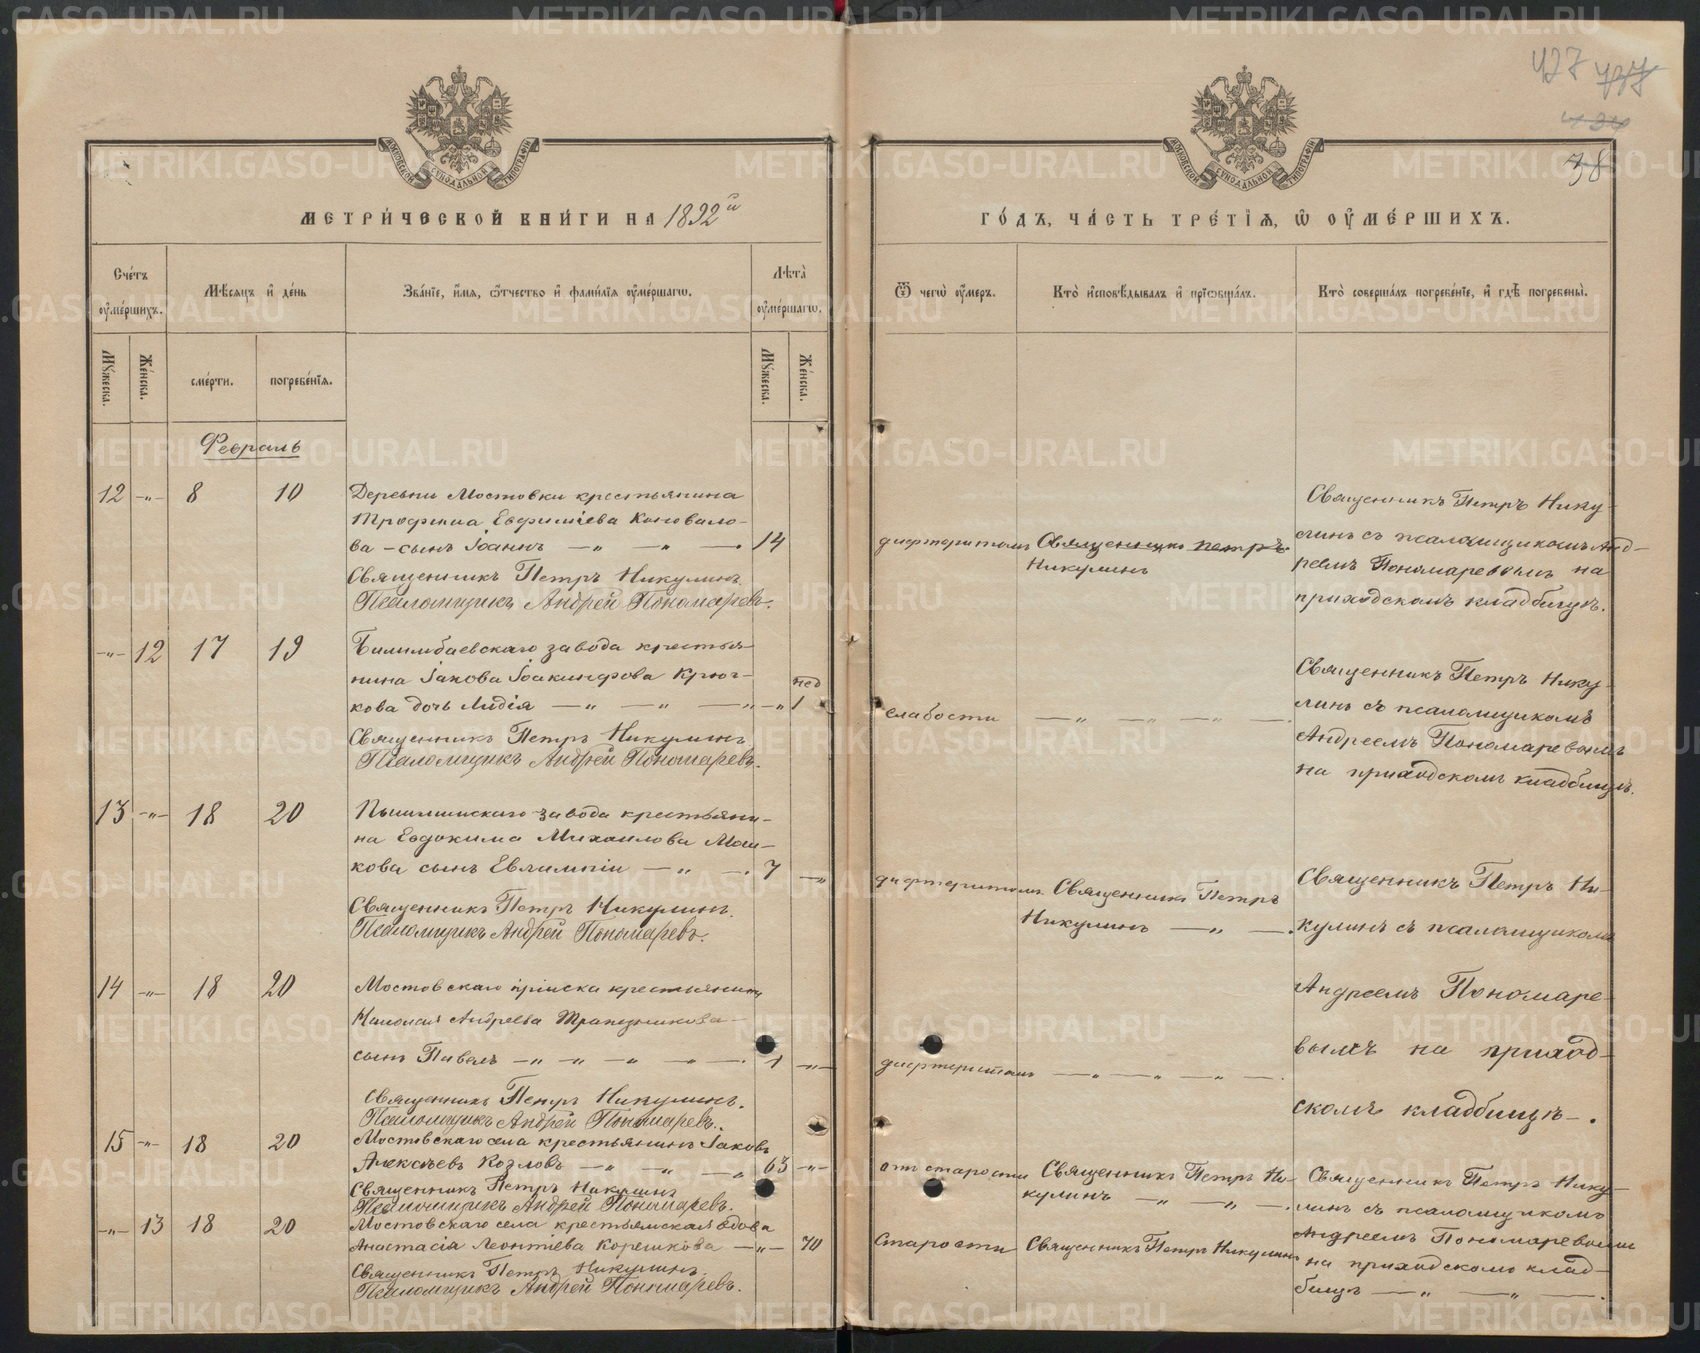 427 737
434
38
МОСКОВСКОЙ СѴНОДАЛЬНОЙ ТИПОГРАФІИ
МОСКОВСКОЙ СѴНОДАЛЬНОЙ ТИПОГРАФІИ
МЕТРИ́ЧЕСКОЙ КНИ́ГИ НА 1892й
ГО́ДЪ, ЧА́СТЬ ТРЕ́ТІѦ, Ѡ ОУ҆МЕ́РШИХЪ.
Сче́тъ оу҆ме́ршихъ.
Мѣ́сѧцъ и҆ де́нь
Зва́нїе, и҆́мѧ, ѻ҆́тчество и҆ фами́лїѧ оу҆ме́ршагѡ.
Лѣ̑та̀ оу҆ме́ршагѡ.
Ѿ чегѡ̀ оу҆́меръ.
Кто̀ и҆сповѣ́дывалъ и҆ прїѡбща́лъ.
Кто̀ соверша́лъ погребе́нїе, и҆ гдѣ̀ погребены̀.
Мꙋ́жеска.
Же́нска.
сме́рти.
погребе́нїѧ.
Мꙋ́жеска.
Же́нска.
Февраль
12 -"- 8 10 Деревни Мостовки крестьянина
Трофима Евфиміева Коновало-
ва - сынъ Іоаннъ — " — " — . 14
Священникъ Петръ Никулинъ
Псаломщикъ Андрей Пономаревъ.
дифтеритомъ Священникъ Петръ
Никулинъ
Священникъ Петръ Нику-
линъ съ псаломщикомъ Анд-
реемъ Пономаревымъ на
приходскомъ кладбищѣ.
-"- 12 17 19 Билимбаевскаго завода крестья-
нина Іакова Іоакинфова Крюч-
кова дочь Лидія — " — " — " -"- нед 1
Священникъ Петръ Никулинъ
Псаломщикъ Андрей Пономаревъ.
слабости — " — " — " — .
Священникъ Петръ Нику-
линъ съ псаломщикомъ
Андреемъ Пономаревымъ
на приходскомъ кладбищѣ.
13 -"- 18 20 Пышминскаго завода крестьяни-
на Евдокима Михаилова Мош-
кова сынъ Евлампій — " — . 7 -"-
Священникъ Петръ Никулинъ.
Псаломщикъ Андрей Пономаревъ.
дифтеритомъ Священникъ Петръ
Никулинъ — " — .
Священникъ Петръ Ни-
кулинъ съ псаломщикомъ
14 -"- 18 20 Мостовскаго пріиска крестьянина
Николая Андреева Трапезникова -
сынъ Павелъ — " — " — " — " — . 1 -"-
Священникъ Петръ Никулинъ.
Псаломщикъ Андрей Пономаревъ.
дифтеритомъ — " — " — " — .
Андреемъ Пономаре-
вымъ на приход-
скомъ кладбищѣ — .
15 -"- 18 20 Мостовскаго села крестьянинъ Іаковъ
Алексѣевъ Козловъ — " — " — " 63 -"-
Священникъ Петръ Никулинъ
Псаломщикъ Андрей Пономаревъ.
отъ старости Священникъ Петръ Ни-
кулинъ — " — " — .
Священникъ Петръ Нику-
линъ съ псаломщикомъ
-"- 13 18 20 Мостовскаго села крестьянская вдова
Анастасія Леонтіева Корешкова -"- 70
Священникъ Петръ Никулинъ.
Псаломщикъ Андрей Пономаревъ.
старости Священникъ Петръ Никулинъ
Андреемъ Пономаревымъ
на приходскомъ клад-
бищѣ — " — " — .